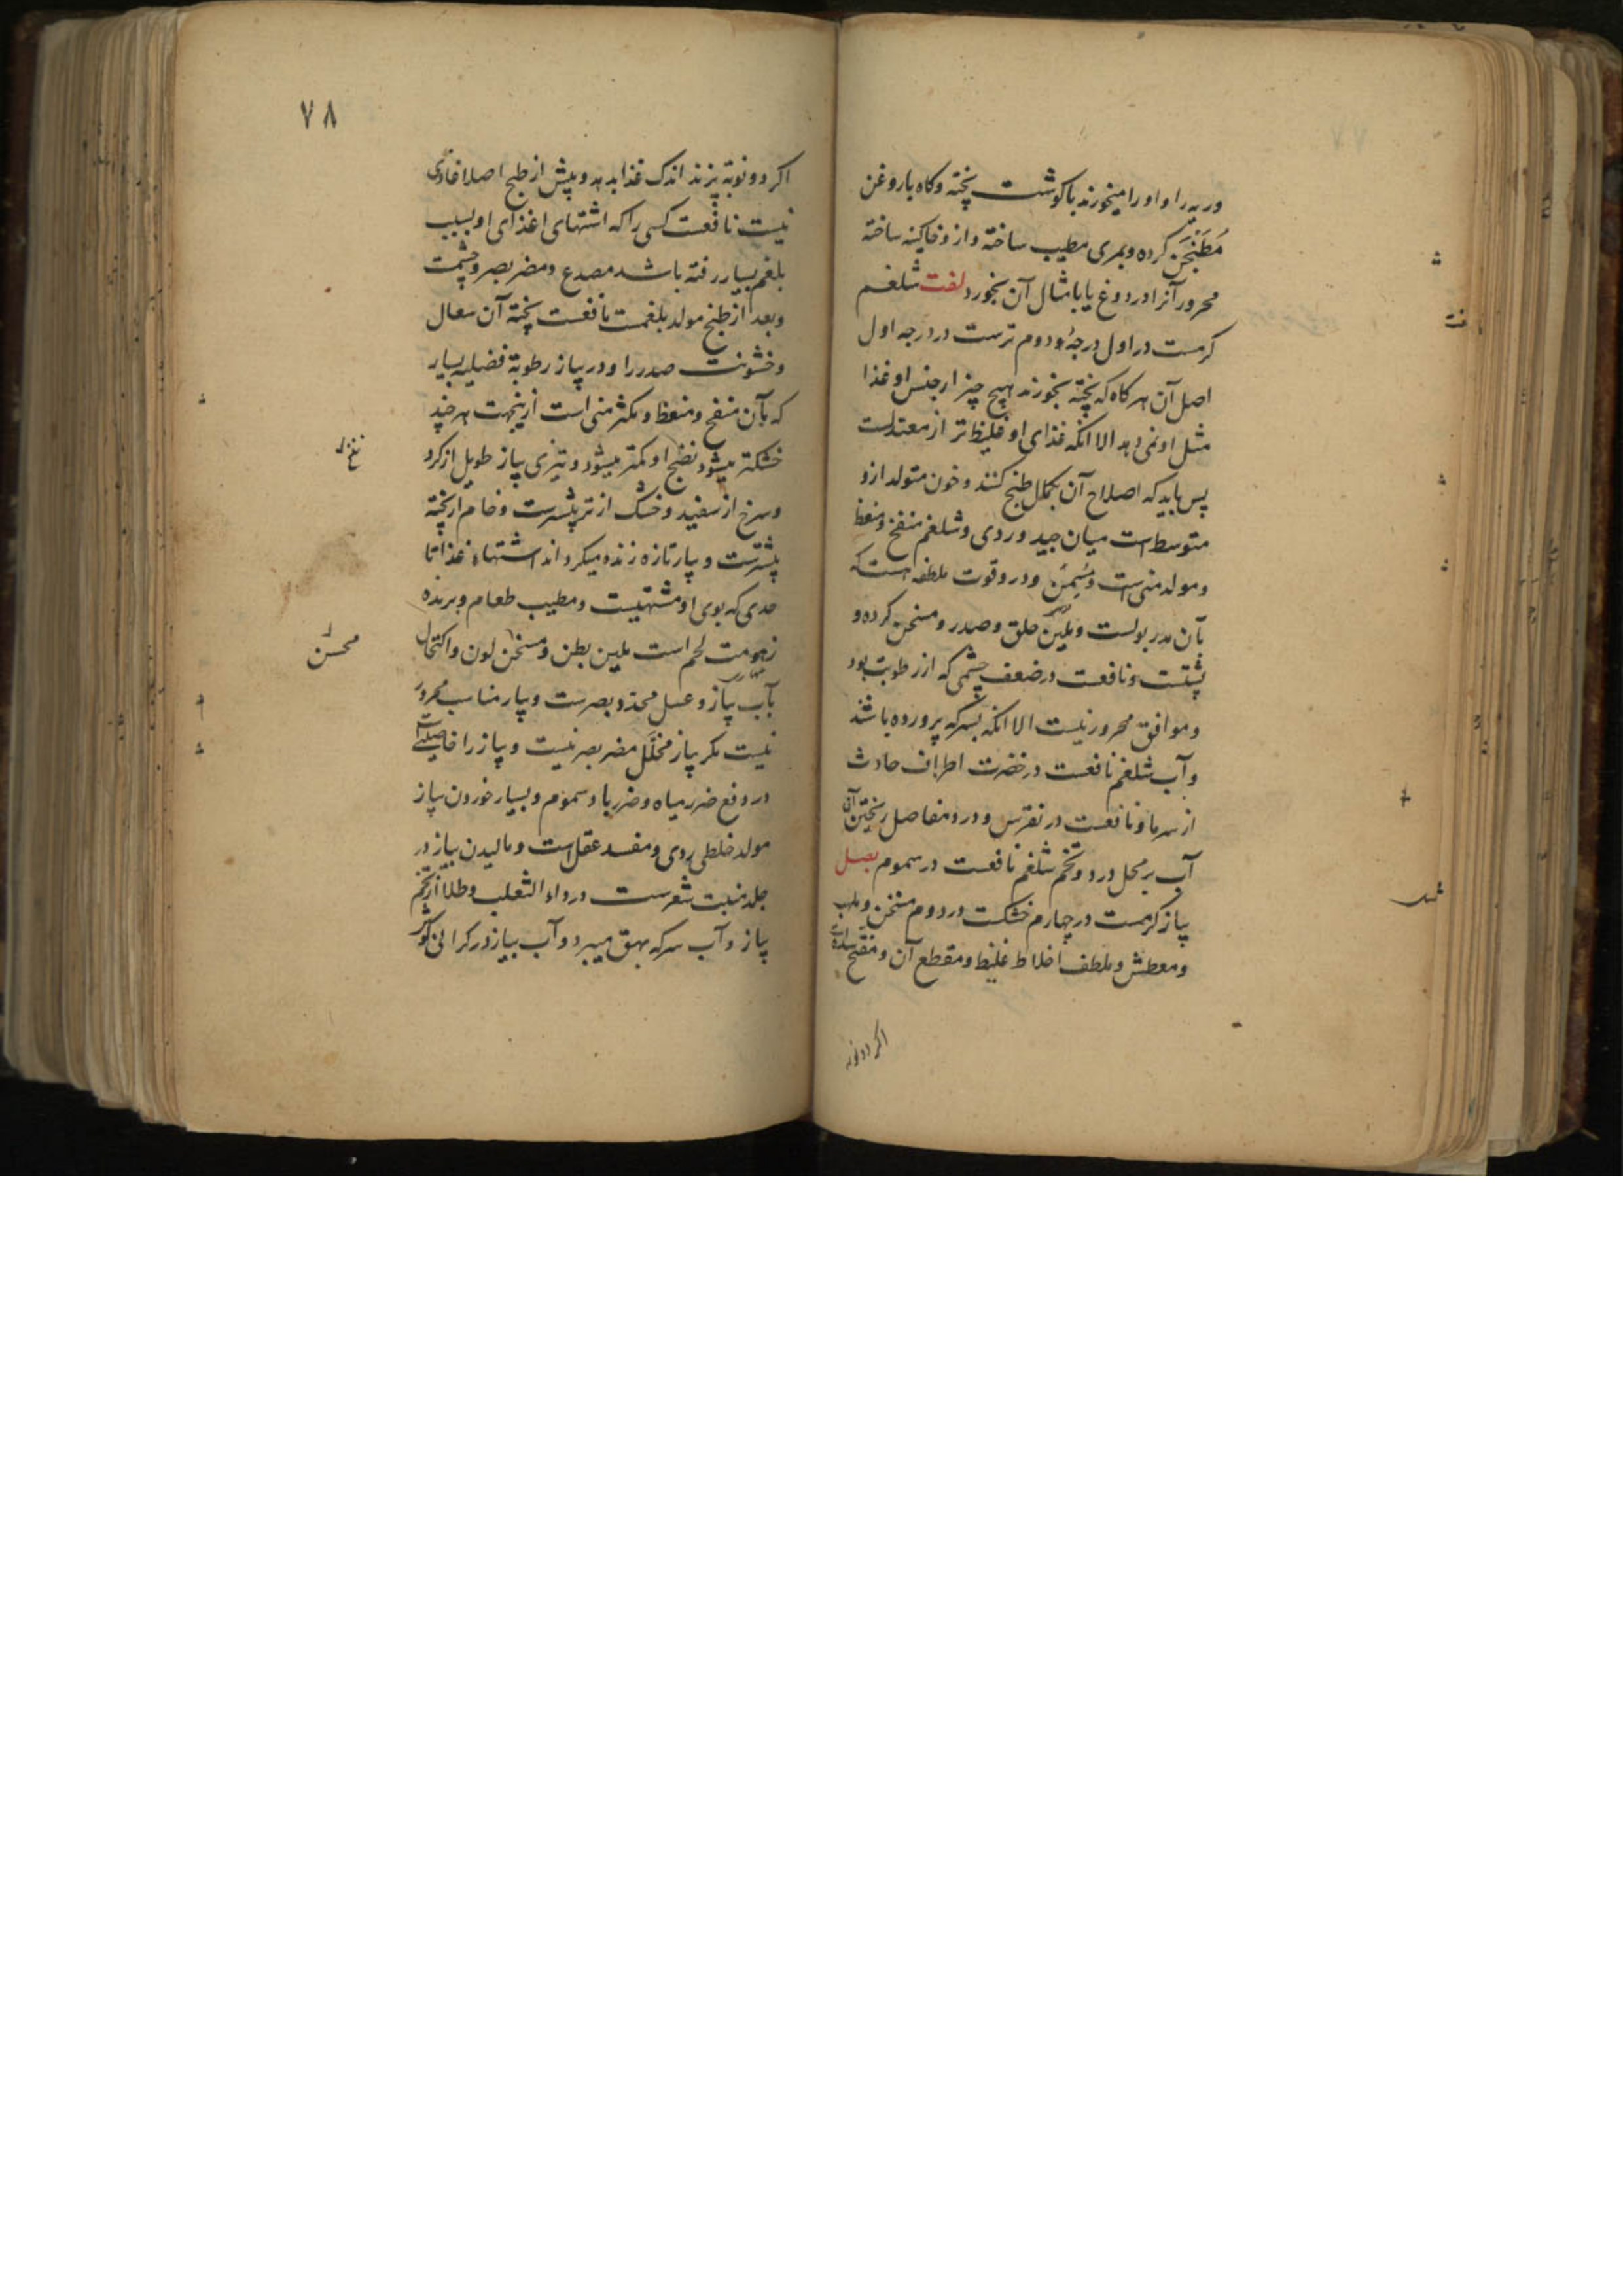 وریه را و او را میخورند با کوشت پخته و کاه با روغن
مُطَنجَن کرده و بمری مطیب ساخته و از و خاکینه ساخته
محرور آنرا در دوغ یا بامثال آن بخورد لفت شلغم
کرمست در اول درجهٔ دوم ترست در درجه اول
اصل آن هر کاه که پخته بخورند هیچ چیز از جنس او غذا
مثل او نمی دهد الا انکه غذای او غلیظ تر از معتدلست
پس باید که اصلاح آن بکمال طبخ کنند و خون متولد ازو
متوسط است میان جید و ردی و شلغم منفخ و منعظ
و مولد منی است و مُسمِن و در و قوت ملطفه است که
بآن مدر بولست و ملین حلق و صدر و مسخن کرده و
پشتست و نافعست در ضعف چشمی که از رطوبت بود
و موافق محرور نیست الا انکه بسرکه پرورده باشند
و آب شلغم نافعست در خضرت اطراف حادث
از سرما و نافعست در نقرس و درد مفاصل ریختن آن
آب بر محل درد و تخم شلغم نافعست در سموم بصل
پیاز کرمست در چهارم خشکست در دوم مسخن و ملهب
و معطش و ملطف اخلاط غلیظ و مقطع آن و مفتح سده است
اکر دو نوبه
۷۸
اکر دو نوبة پزند اندک غذا بدهد و پیش از طبخ اصلا غاذی
نیست نافعست کسی را که اشتهای اغذای او بسبب
بلغم بسیار رفته باشد مصدع و مضر بصر و چشمت
و بعد از طبخ مولد بلغمت نافعست پخته آن سعال
و خشونت صدر را و در پیاز رطوبة فضلیه بسیار
که بآن منفخ و منعظ و مکثر منی است ازینجهت هر چند
خشکتر میشود نضج او کمتر میشود و تیزی پیاز طویل از کرد
و سرخ از سفید و خشک از تر پیشترست و خام از پخته
پیشترست و پیاز تازه زنده میکرداند اشتهاء غذا تا
حدی که بوی او مشتهیست و مطیب طعام و برنده
زهومت لحم است ملین بطن و مسخن لون و اکتحال
محسن
بآب پیاز و عسل محد و بصرست و پیاز مناسب محرور
نیست مکر پیاز مخلَّل مضر بصر نیست و پیاز را خاصیتیست
در دفع ضرر میاه و ضرر باد سموم و بسیار خوردن پیاز
مولد خلطی ردی و مفسد عقل است و مالیدن پیاز در
جلد منبت شعرست در داء الثعلب و طلا از تخم
پیاز و آب سرکه بهق میبرد و آب پیاز در کرانی کوش